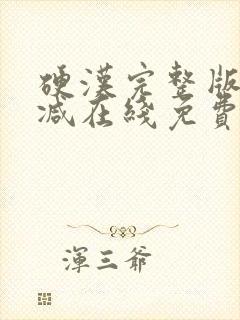 硬漢完整版
減在綫免費
渾三爺